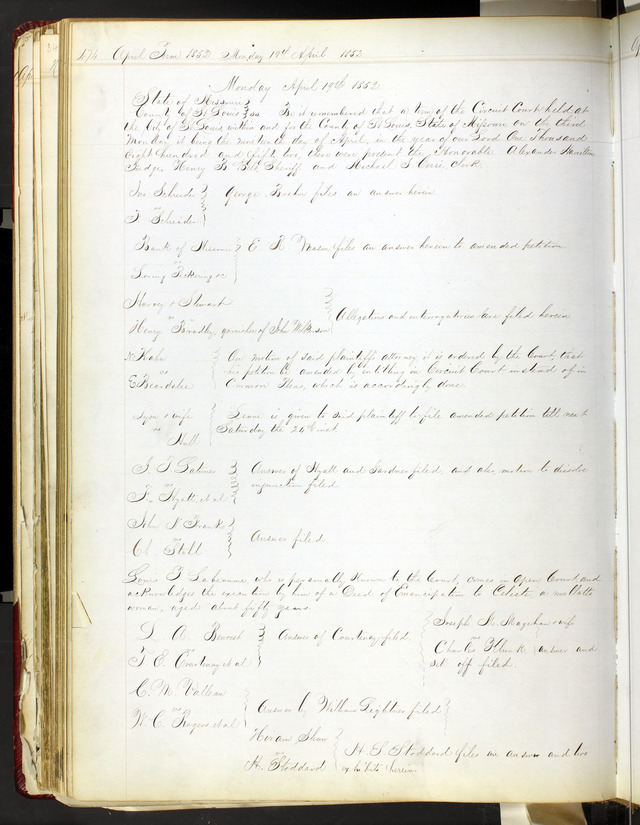 474 April Term 1852 Monday 19th April 1852
Monday April 19th 1852
State of Missouri
County of St Louis ss Be it remembered that a term of the Circuit Court held at
the City of St Louis within and for the County of St Louis, State of Missouri on the third
Monday it being the nineteenth day of April, in the year of our Lord One Thousand
Eight hundred and fifty two, there were present the Honorable Alexander Hamilton
Judge, Henry B Sheriff and Michael S Cerre Clerk
Jno Schrider
vs
J Schrider
George Brehm files an answer herein
Bank of Missouri
vs
Loring Pickering &c
E R Mason files an answer herein to amended petition
Harvey & Stewart
vs
Henry Bradley, garnishee of John Wilkerson
Allegations and interrogatories are filed herein
Hahn
vs
E Beardslee
On motion of said plaintiffs attorney it is ordered by the Court, that
his petition be amended by entitling in Circuit Court instead of in
Common Pleas, which is accordingly done
& wife
vs
Hall
Leave is given to said plaintiff to file amended petition till next
Saturday the 24th inst
vs
Hyatt et al
Answer of Hyatt and Gardner filed, and also motion to dissolve
injunction filed
John N Frank
vs
Ch. Stahl
Answer filed
Louis T Labeaume, who is personally known to the Court, comes in Open Court and
acknowledges the execution by him of a Deed of Emancipation to Celeste a mullatto
woman, aged about fifty years.
L A Benoist
vs
T. E. Courtenay et al
Answer of Courtenay filed
Joseph & wife
vs
Charles answer and
set off filed.
C. M. Valleau
vs
W. C. Rogers et al
Answer by William Lightner filed
Hiram Shaw
vs
H. Stoddard
H. S. Stoddard files an answer and two
exhibits herein